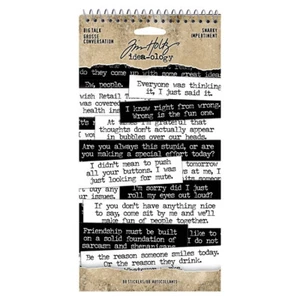 BIG TALK
GROSSE
CONVERSATION
Tim Holtz
idea-ology
SNARKY
IMPERTINENT
do they come up with some great ideas
Ew, people.
Everyone was thinking
it, I just said it.
wish Retail T
was covered
I know right from wrong.
Wrong is the fun one.
At times I'm grateful that
thoughts don't actually appear
in bubbles over our heads.
Are you always this stupid, or are
you making a special effort today?
I didn't mean to push
all your buttons. I was
just looking for mute.
tomorrow
is at me,
it's
I'm sorry did I just
roll my eyes out loud?
If you don't have anything nice
to say, come sit by me and we'll
make fun of people together.
Friendship must be built
on a solid foundation of
sarcasm and shenanigans.
like
I do not
Be the reason someone smiles today.
Or the reason they drink.